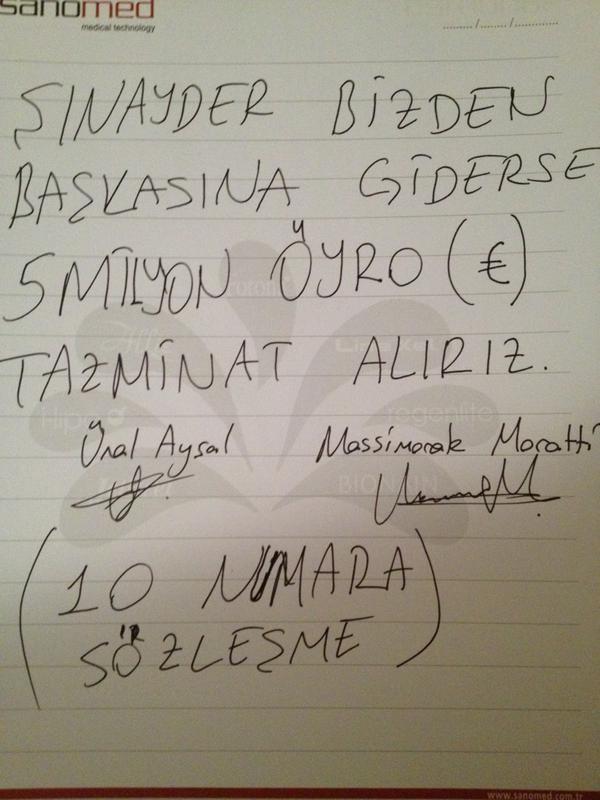 sanomed
medical technology
....... / ....... / ............
ŞINAYDER BİZDEN
BAŞKASINA GİDERSE
5 MİLYON ÖYRO (€)
TAZMİNAT ALIRIZ.
Ünal Aysal Massimorak Moratti
(10 NUMARA
SÖZLEŞME)
www.sanomed.com.tr